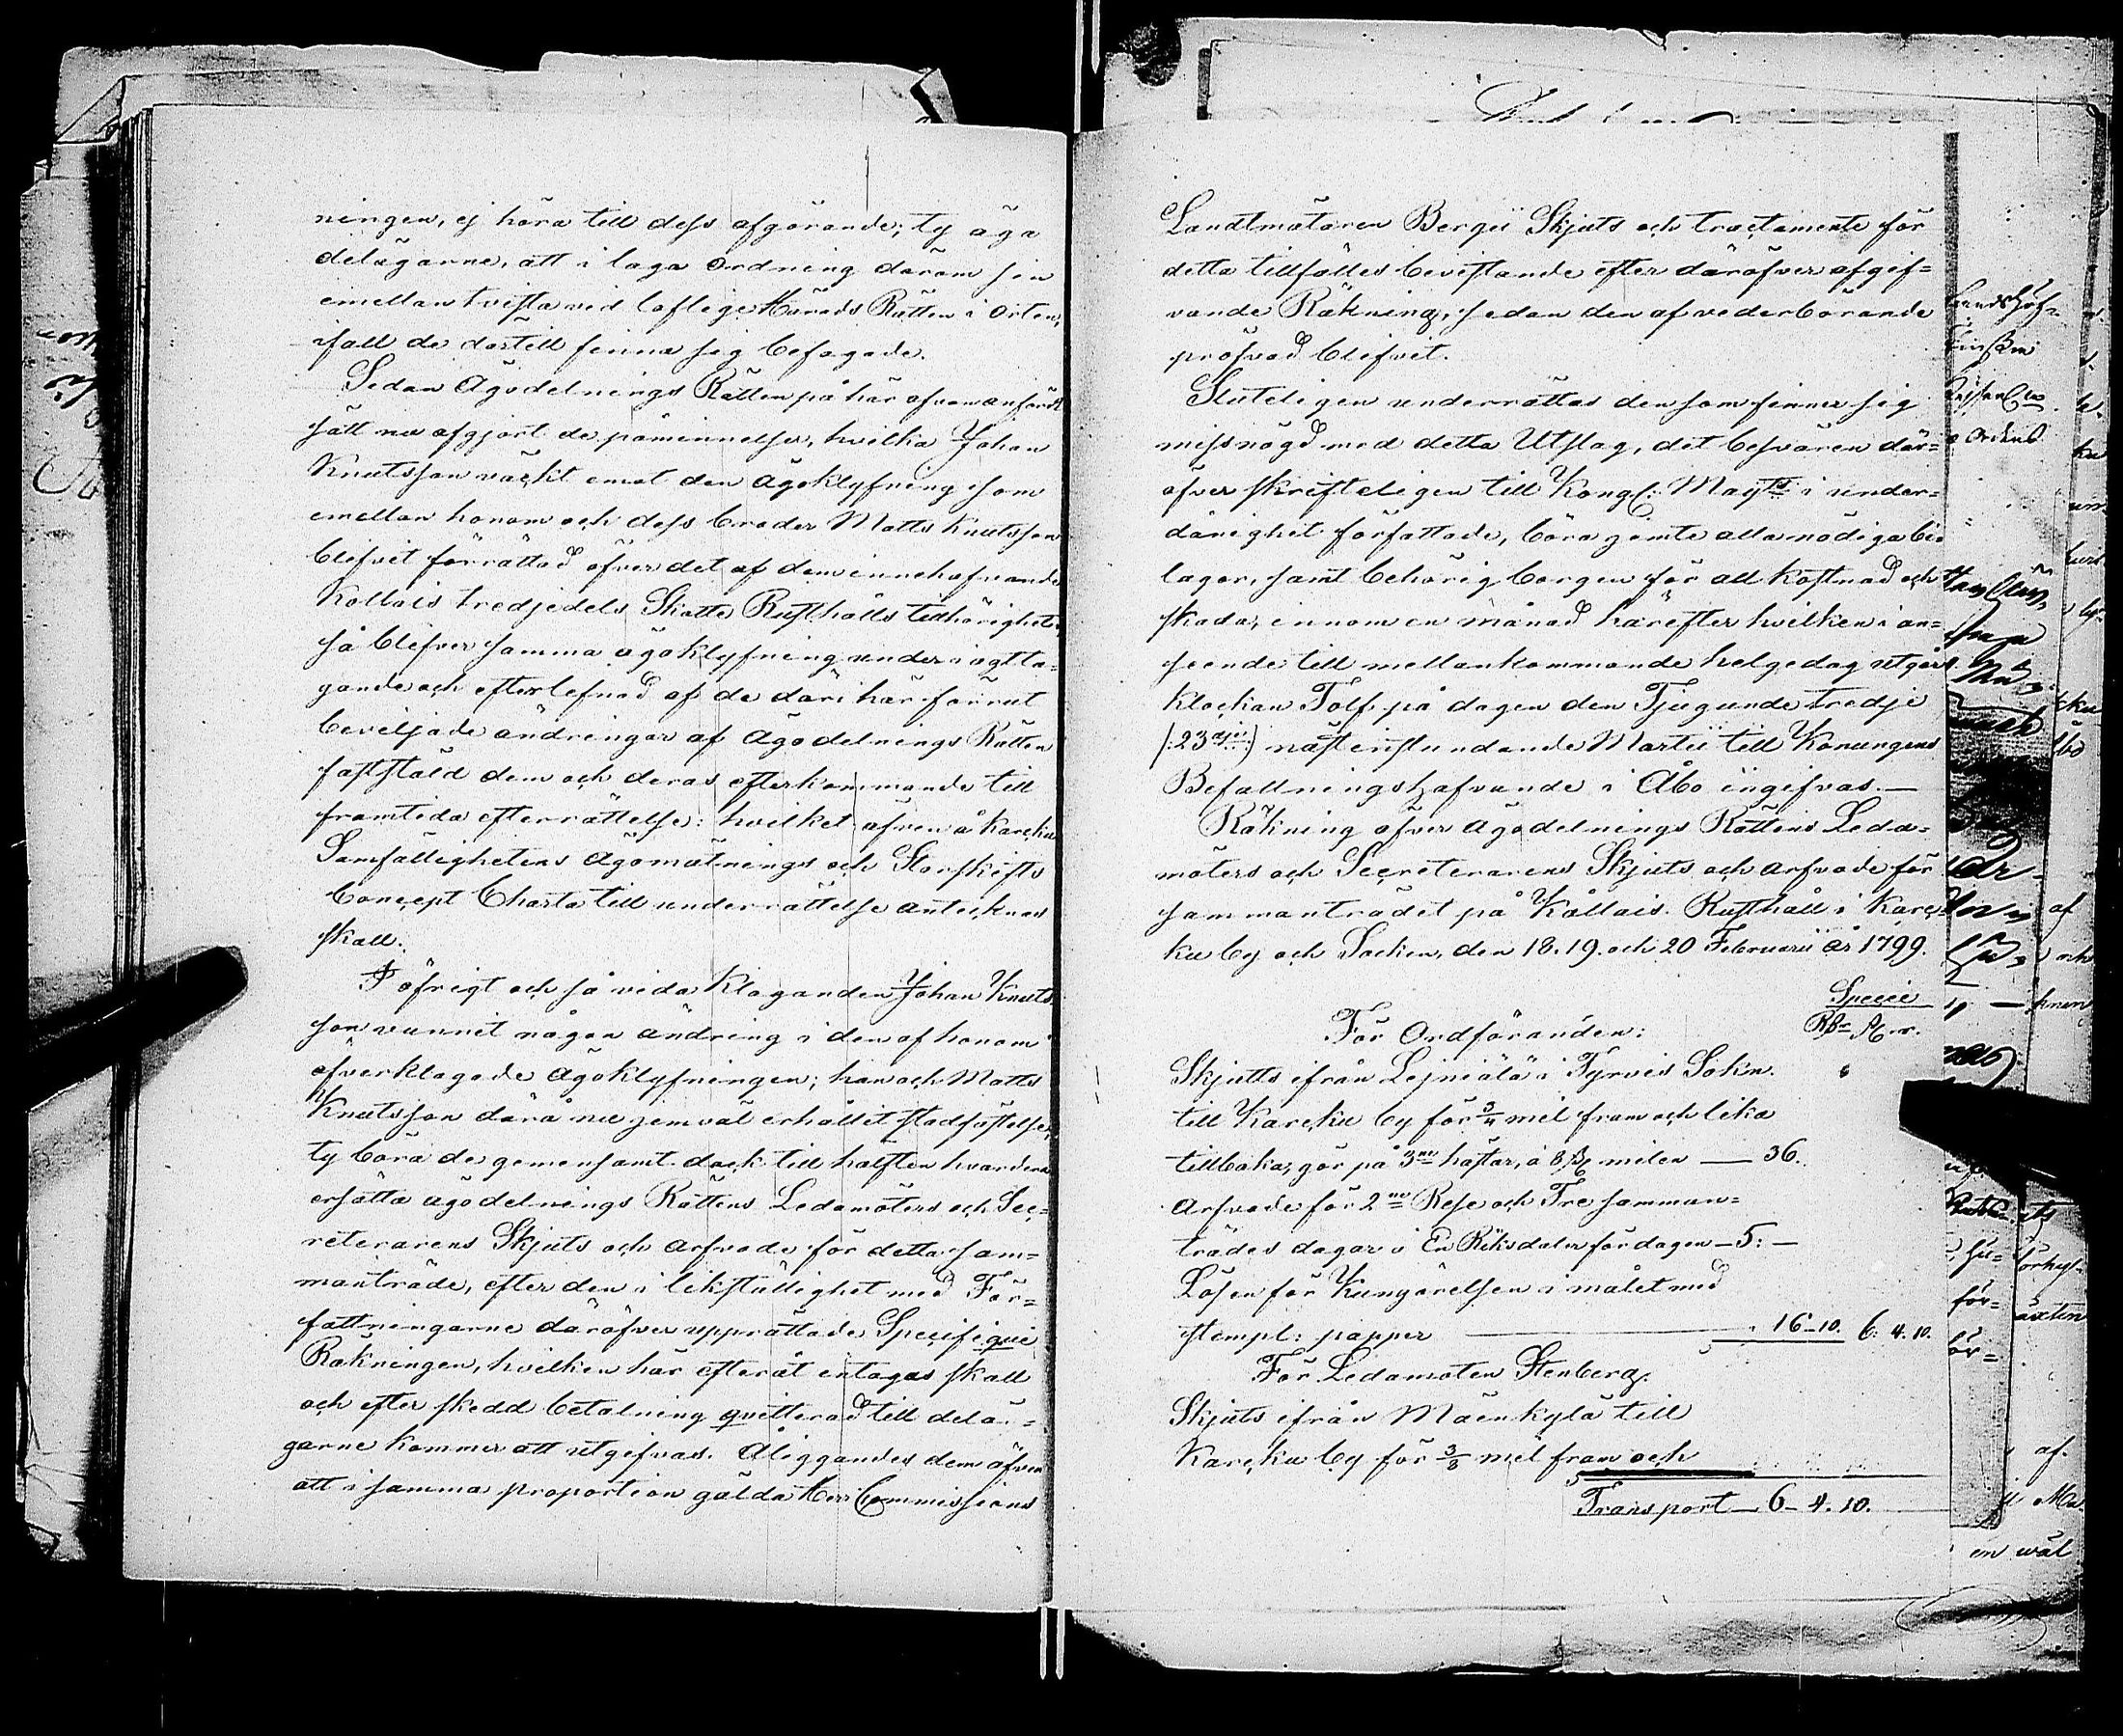 ningen, ej höra till dess afgörande; ty äga
delägarne, att i laga Ordning därom sin
emellan tvista vid laflige Härads Rätten i Orten,
ifall de dertill finna sig befogade.
Sedan Ägodelnings Rätten på här ofvananförde
sätt nu afgjort de påminnelser, hvilka Johan
Knutsson väckt emot den ägoklyfning som
emellan honom och dess broder Matts Knutsson
blifvit förrättad öfver det af dem innehafvande
Kallais tredjedels Skatte Rusthålls tillhörigheter
så blifver samma ägoklyfning under iagtta=
gande och efterlefnad af de däri här förrut
beviljade ändringar af Ägodelnings Rätten
fastställd dem och deras efterkommande till
framtida efterrättelse: hvilket äfven å Karcku
Samfällighetens Ägomätnings och Storskifts
Concept Charta till underrättelse antecknas
skall.
I öfrigt och så vida Klaganden Johan Knuts
son vunnit någon ändring i den af honom
öfverklagade Ägoklyfningen; han och Matts
Knutsson därå nu jemväl erhållit stadfästelse;
ty böra de gemensamt dock till hälften hvardera
ersätta ägodelnings Rättens Ledamöters och Sec=
reterarens Skjuts och arfvode för detta sam=
manträde, efter den i likställighet med För=
fattningarne däröfver upprättade Specifique
Räkningen, hvilken här efteråt intagas skall
och efter skedd betalning qvitterad till delä=
garne kommer att utgifvas. Åliggandes dem äfven
att i samma proportion gälda Herr Commissions
Landtmätaren Bergii Skjuts och tractamente för
detta tillfälles bevistande efter däröfver afgif=
vande Räkning, sedan den af vederbörande
pröfvad blifvit.
Sluteligen underrättas den som finner sig
missnögd med detta Utslag, det besvären där=
öfver skrifteligen till Kongl: Mayts i under=
dånighet författade, böra jemte alla nödiga bi=
lagor, samt behörig borgen för all kostnad och
skada, innom en månad härefter hvilken i an=
seende till mellankommande helgedag utgår
klockan Tolf på dagen den Tjugunde tredje
(:23dje:) nästinstundande Martii till Konungens
Befallningshafvande i Åbo ingifvas.—
Räkning öfver Ägodelnings Rättens Leda=
möters och Secreterarens Skjuts och arfvode för
sammanträdet på Kallais Rusthåll i Karc=
ku by och Socken, den 18. 19. och 20 Februarii år 1799.
Specie
För Ordföranden: Rd. s. r.
Skjutts ifrån Lejniälä i Tyrvis Sokn.
till Karcku by för 3/4 mil fram och lika
tillbaka, gör på 3ne hästar, à 8 s milen — 36.
Arfvode för 2ne Rese och Tre samman=
trädes dagar à En Riksdaler för dagen — 5: —
Lösen för Kungörelsen i målet med
stempl: papper — 16-10. 6. 4. 10.
För Ledamoten Stenberg.
Skjuts ifrån Mäenkylä till
Karcku by för 3/8 mil fram och
Transport — 6 — 4. 10.